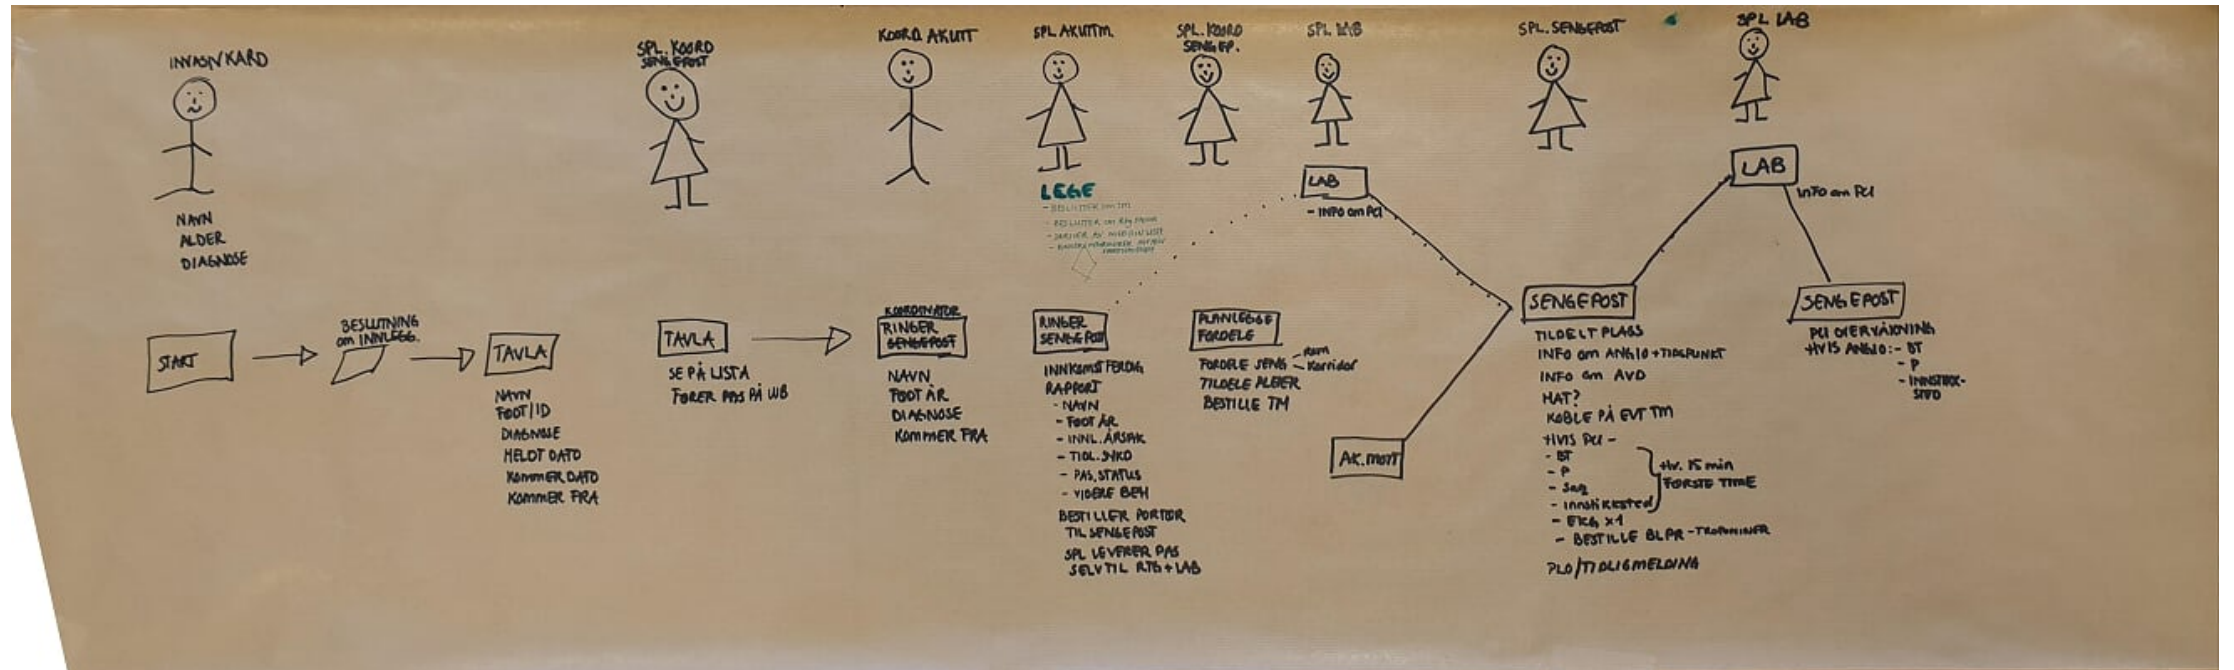 INVASIV KARD
NAVN
ALDER
DIAGNOSE
START
BESLUTNING
om INNLEGG.
TAVLA
NAVN
FØDT/ID
DIAGNOSE
MELDT DATO
KOMMER DATO
KOMMER FRA
SPL. KOORD
SENGEPOST
TAVLA
SE PÅ LISTA
FØRER PAS PÅ WB
KOORD AKUTT
KOORDINATOR
RINGER
SENGEPOST
NAVN
FØDT ÅR
DIAGNOSE
KOMMER FRA
SPL AKUTTM.
LEGE
- BESLUTTER om TM
- BESLUTTER om
RINGER
SENGEPOST
INNKOMST FERDIG
RAPPORT
- NAVN
- FØDT ÅR
- INNL. ÅRSAK
- TIDL. SYKD
- PAS. STATUS
- VIDERE BEH
BESTILLER PORTØR
TIL SENGEPOST
SPL LEVERER PAS
SELV TIL RTG + LAB
SPL. KOORD
SENGEP.
PLANLEGGE
FORDELE
FORDELE SENG - Rom
- Korridor
TILDELE PLEIER
BESTILLE TM
SPL LAB
LAB
- INFO om PCI
AK. MOTT
SPL. SENGEPOST
SENGEPOST
TILDELT PLASS
INFO om ANGIO + TIDSPUNKT
INFO om AVD
MAT?
KOBLE PÅ EVT TM
HVIS PCI -
- BT
- P
- Sag
- Innstikksted
Hv. 15 min
FØRSTE TIME
- EKG x1
- BESTILLE BLPR - TROPONINER
PLO/TIDLIGMELDING
SPL LAB
LAB
INFO om PCI
SENGEPOST
PCI OVERVÅKNING
HVIS ANGIO: - BT
- P
- INNSTIKK-
STED